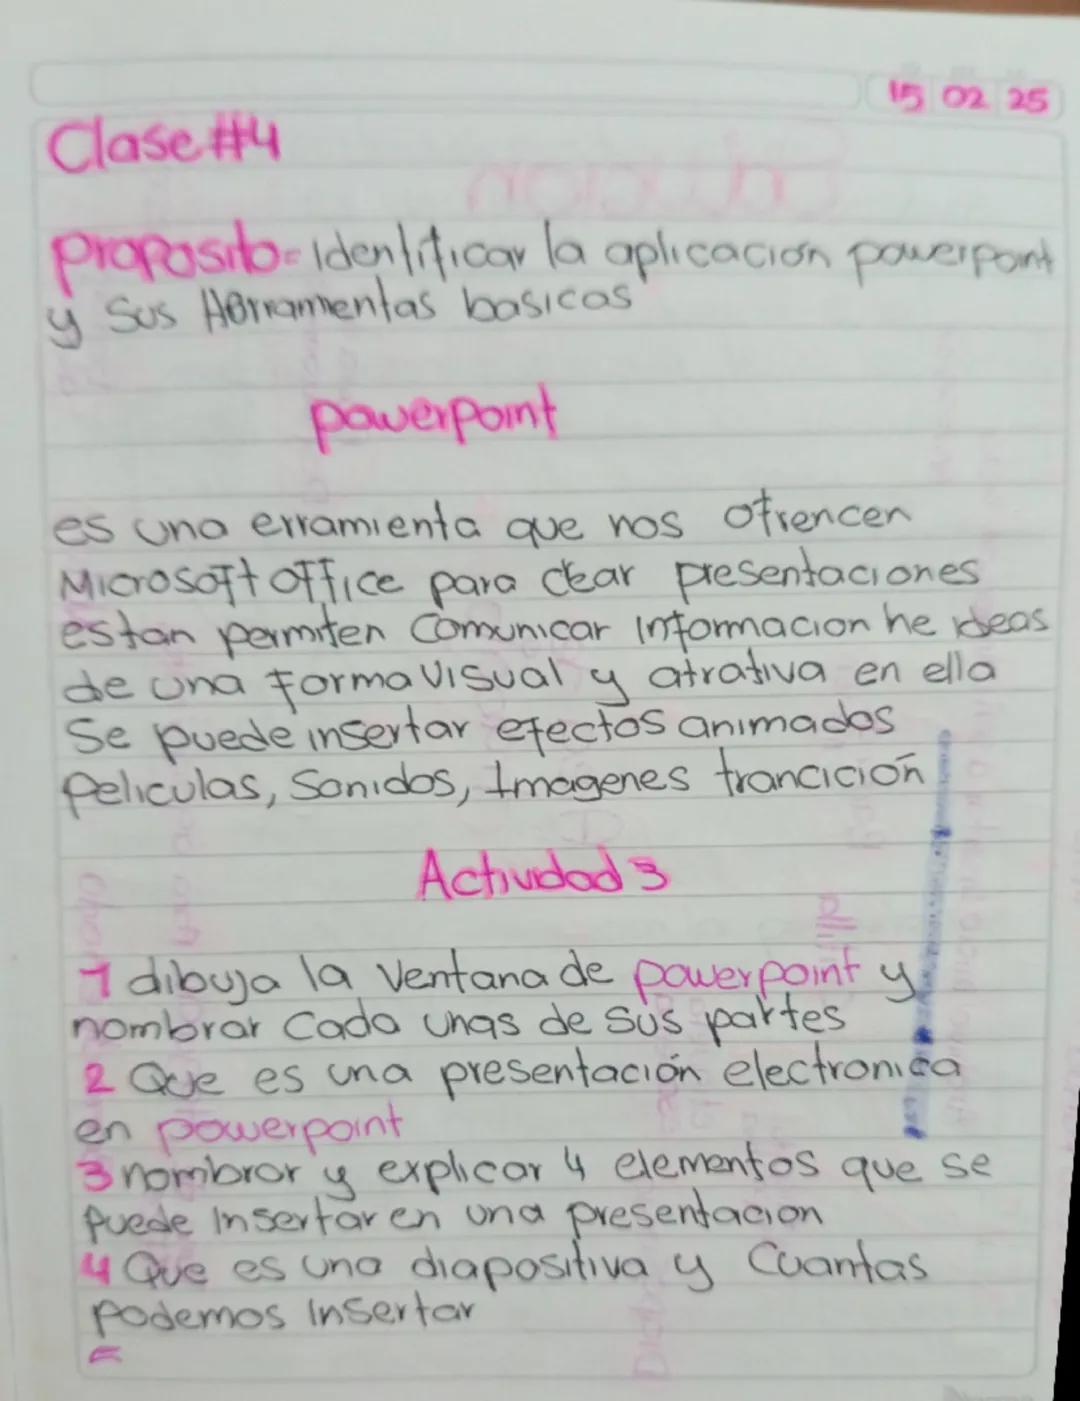 15 02 25
Clase #4
proposito = Identificar la aplicación powerpoint
y sus Herramentas basicas
powerpoint
es una erramienta que nos ofrencen
Microsoft office para crear presentaciones
estan permiten comunicar informacion he ideas
de una forma visual y atrativa en ella
Se puede insertar efectos animados
peliculas, Sonidos, Imagenes trancición
Actividad 3
1 dibuja la ventana de powerpoint y
nombrar cada unas de sus partes
2 Que es una presentación electronica
en powerpoint
3 nombrar y explicar 4 elementos que se
puede insertar en una presentacion
4 Que es una diapositiva y Cuantas
podemos insertar
=